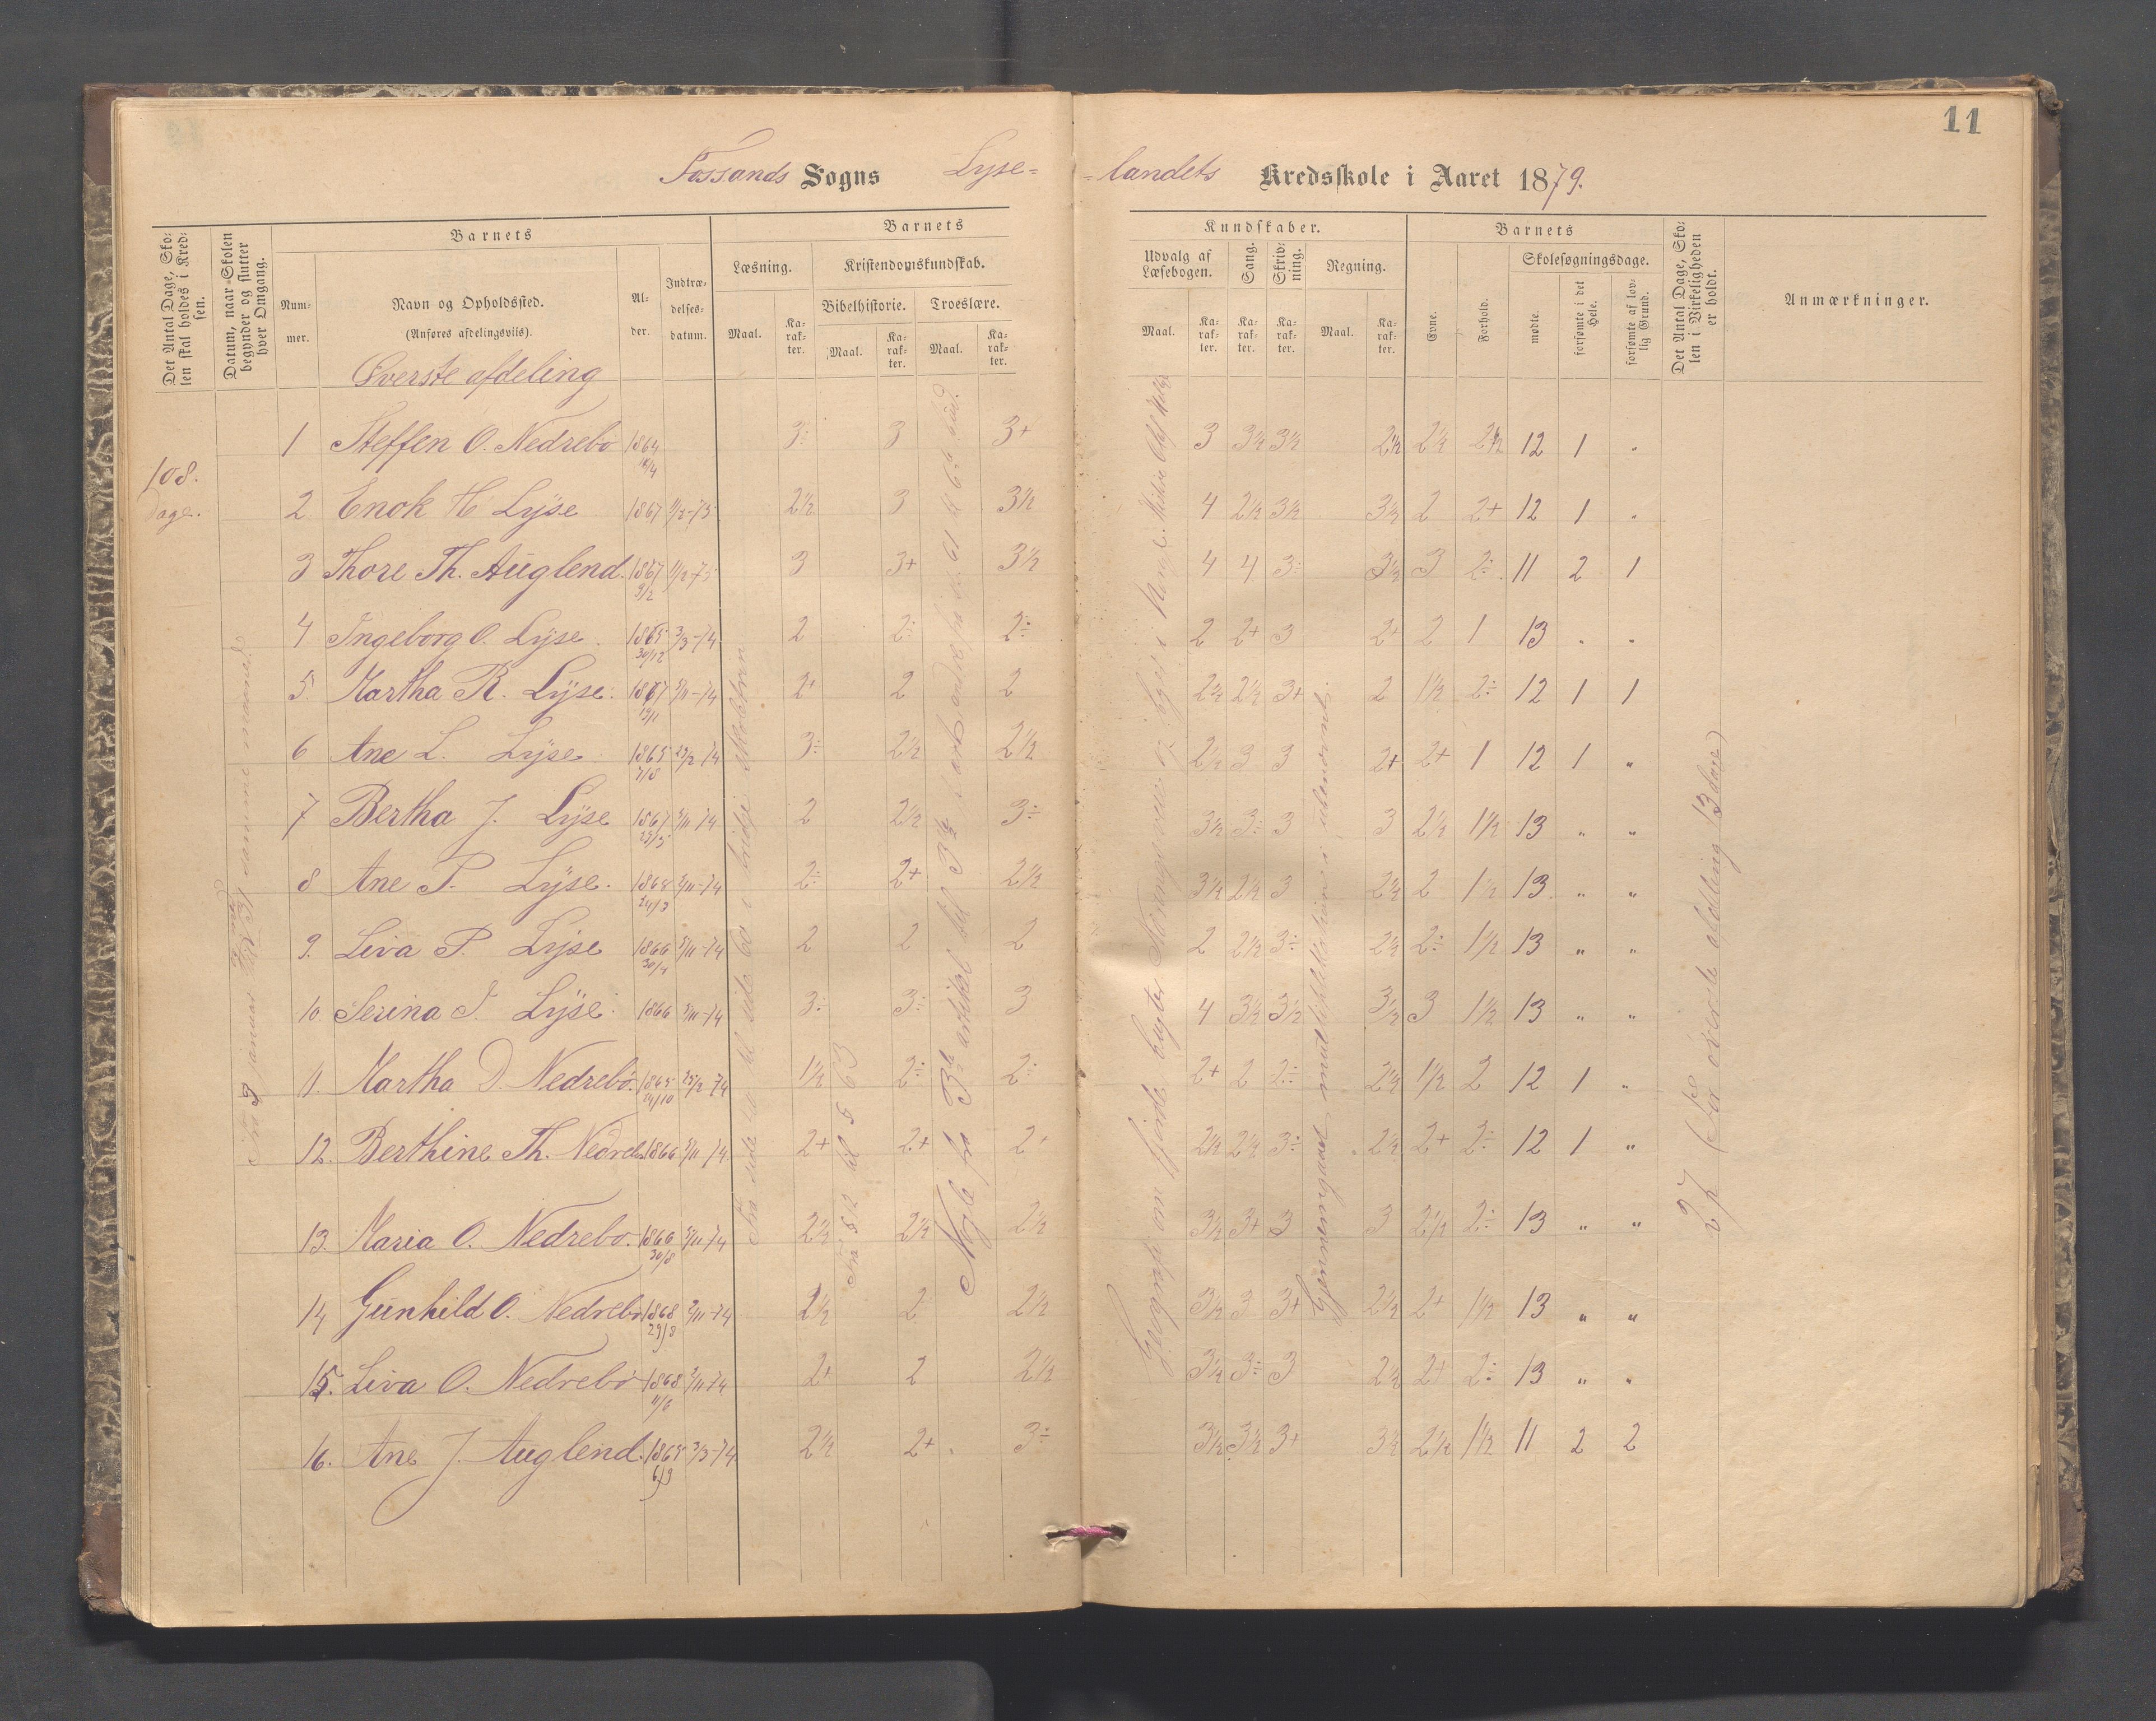 11
Fossands Sogns Lyse= =landets Kredsskole i Aaret 1879.
Det Antal Dage, Skolen skal holdes i Kredsen.
Datum, naar Skolen begynder og slutter hver Omgang.
Barnets
Nummer.
Navn og Opholdssted.
(Anføres afdelingsviis).
Alder.
Indtrædelsesdatum.
Barnets
Kundskaber.
Læsning.
Kristendomskundskab.
Bibelhistorie.
Troeslære.
Maal.
Karakter.
Maal.
Karakter.
Maal.
Karakter.
Udvalg af Læsebogen.
Sang.
Skrivning.
Regning.
Maal.
Karakter.
Karakter.
Karakter.
Maal.
Karakter.
Barnets
Evne.
Forhold.
Skolesøgningsdage.
mødte.
forsømte i det Hele.
forsømte af lovlig Grund.
Det Antal Dage, Skolen i Virkeligheden er holdt.
Anmærkninger.
Øverste afdeling
108.
Dage.
1 Steffen O. Nedrebø 1864 3÷ 3 3+ 3 3½ 3½ 2½ 2½ 2½ 12 1 "
2 Enok H Lyse 1867 2½ 3 3½ 4 2½ 3½ 3½ 2 2+ 12 1 "
3 Thore Th. Auglend. 1867 9/2 3 3+ 3½ 4 4 3÷ 3½ 3 2÷ 11 2 1
4 Ingeborg O. Lyse. 1865 30/12 3/3-74 2 2÷ 2÷ 2 2+ 3 2+ 2 1 13 " "
5. Martha R. Lyse. 1867 13/11 5/11-74 2+ 2 2 2½ 2½ 3+ 2 1½ 2÷ 12 1 1
6 Ane L. Lyse 1865 7/8 25/2 74 3÷ 2½ 2½ 2½ 3 3 2+ 2+ 1 12 1 "
7 Bertha J. Lyse 1867 23/5 5/11-74 2 2½ 3÷ 3½ 3÷ 3 3 2½ 1½ 13 " "
8 Ane P. Lyse. 1868 24/3 5/11-74 2÷ 2+ 2½ 3½ 2½ 3 2½ 2 1½ 13 " "
9. Liva P. Lyse 1866 30/4 5/11-74 2 2 2 2 2½ 3÷ 2½ 2÷ 1½ 13 " "
10 Serina I. Lyse 1866 5/11-74 3÷ 3÷ 3 4 3½ 3½ 3½ 3 1½ 13 " "
11. Martha D. Nedrebø. 1865 24/10 25/2 74 1½ 2÷ 2÷ 2+ 2 2÷ 2½ 1½ 2 12 1 "
12. Berthine Th. Nedreb. 1866 5/11-74 2+ 2+ 2+ 2½ 2½ 3÷ 2½ 2+ 2÷ 12 1 "
13. Maria O. Nedrebø. 1866 30/8 5/11-74 2½ 2½ 2½ 3½ 3+ 3 3 2½ 2÷ 13 " "
14 Gunhild O. Nedrebø 1868 29/3 5/11-74 2½ 2 2½ 3½ 3 3+ 2½ 2+ 1½ 13 " "
15. Liva O. Nedrebø 1868 11/6 5/11-74 2+ 2 2½ 3½ 3÷ 3 2½ 2+ 2÷ 13 " "
16. Ane J. Auglend. 1865 6/9 3/3-74 2½ 2+ 3÷ 3½ 3½ 3+ 3½ 2½ 1½ 11 2 2
Fra 512 til 563
Nogle fra 3die artikel
27 (For øverste afdeling 13 dage)